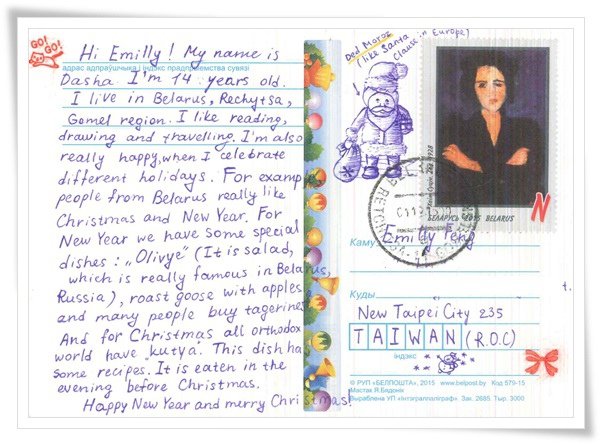 GO! GO!
адрас адпраўшчыка і індэкс прадпрыемства сувязі
Hi Emilly! My name is
Dasha I'm 14 years old.
I live in Belarus, Rechytsa,
Gomel region. I like reading,
drawing and travelling. I'm also
really happy, when I celebrate
different holidays. For example
people from Belarus really like
Christmas and New Year. For
New Year we have some special
dishes: „Olivye" (It is salad,
which is really famous in Belarus,
Russia), roast goose with apples
and many people buy tagerines
And for Christmas all orthodox
world have kutya. This dish ha
some recipes. It is eaten in the
evening before Christmas.
Happy New Year and merry Christmas!
Ded Moroz
(like Santa
Clause in Europe)
БЕЛАРУСЬ 2015 BELARUS
N
Каму
Emilly Feng
Куды
t.
New Taipei City 235
TAIWAN (R.O.C)
індэкс
© РУП «БЕЛПОШТА», 2015 www.belpost.by Код 579-15
Мастак Я.Бядонік
Выраблена УП «Інтэграліпаліграф» Зак. 2685 Тыр. 3000